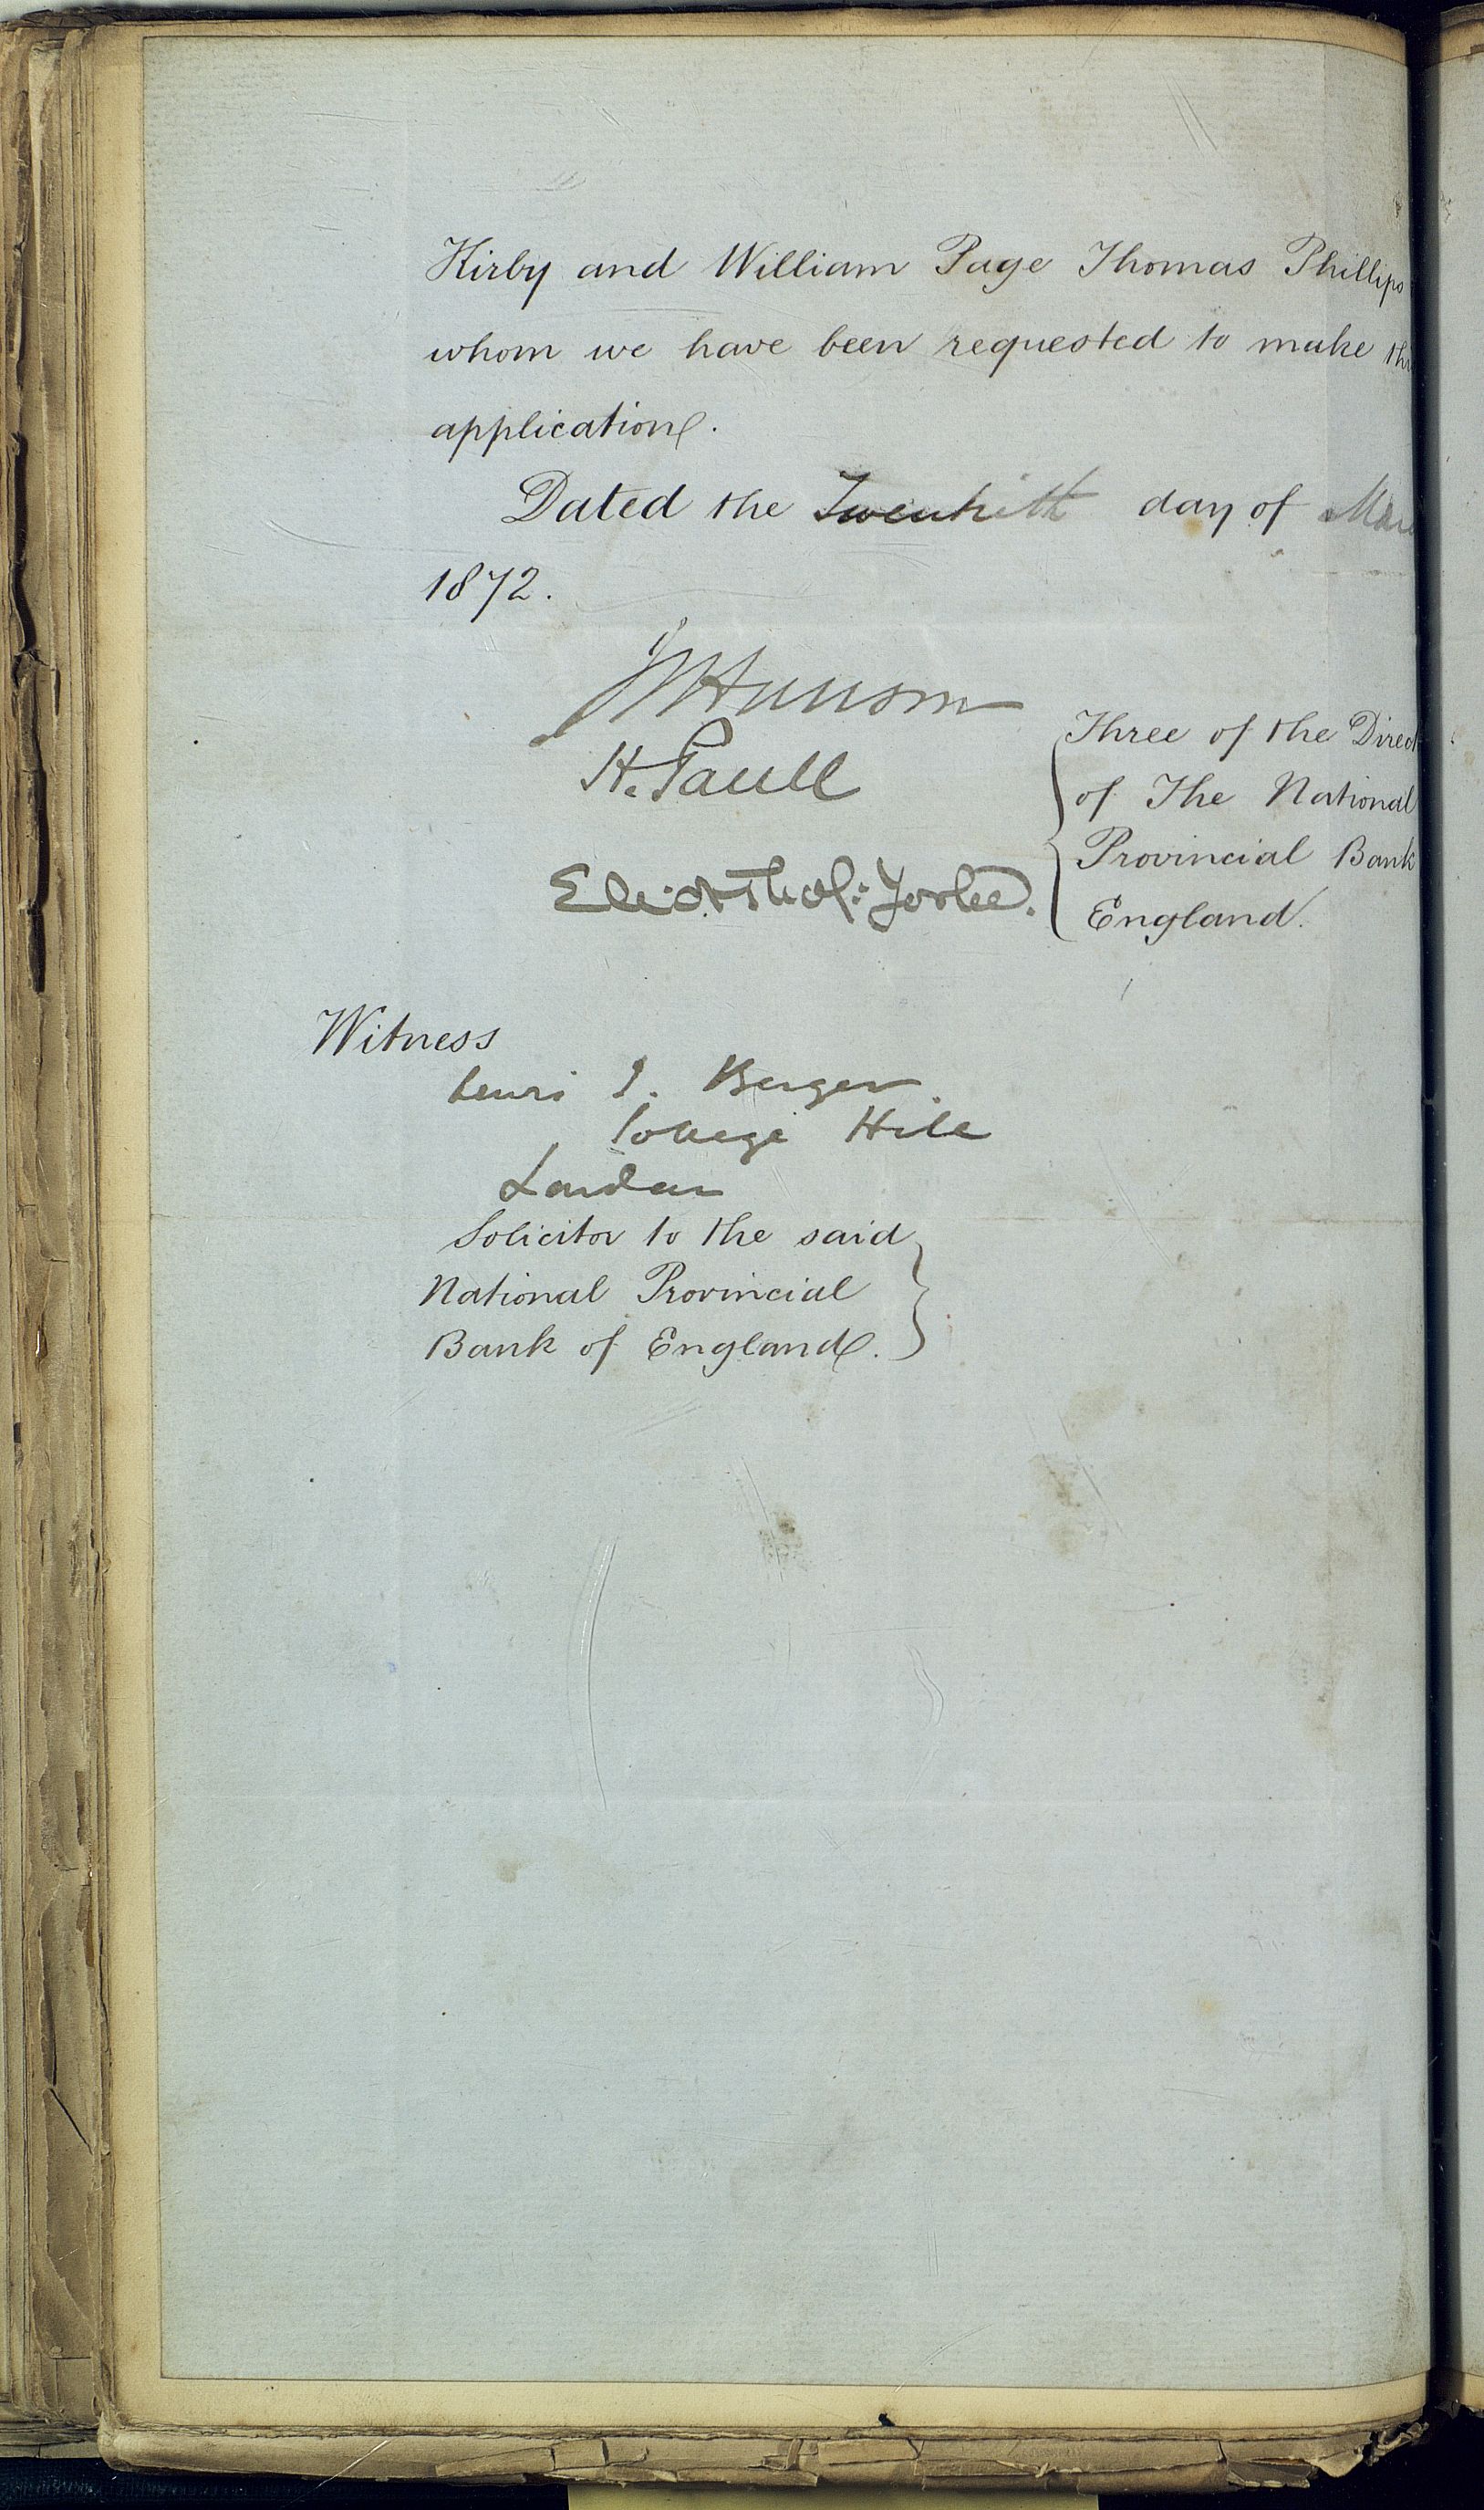 Kirby and William Page Thomas Phillips
whom we have been requested to make
application.
Dated the Twentieth day of
1872.
H. Paull
Three of the
of The National
Provincial Bank
England.
Witness
Berger
College Hill
London
Solicitor to the said
National Provincial
Bank of England.